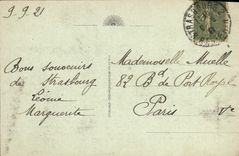 9.9.21
STRASBOURG
Bons souvenirs
de Strasbourg
Léonie
Marguerite
Mademoiselle Muelle
82 Bd de Port Royal
Paris Ve